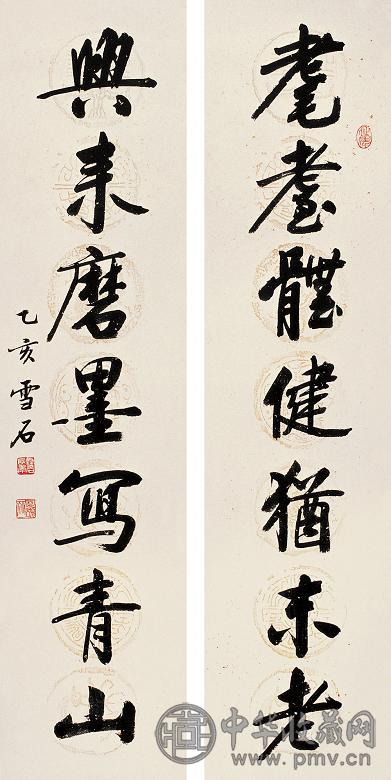 耄耋體健猶未老
興來磨墨寫青山
乙亥雪石
中华收藏网
www.pmv.cn